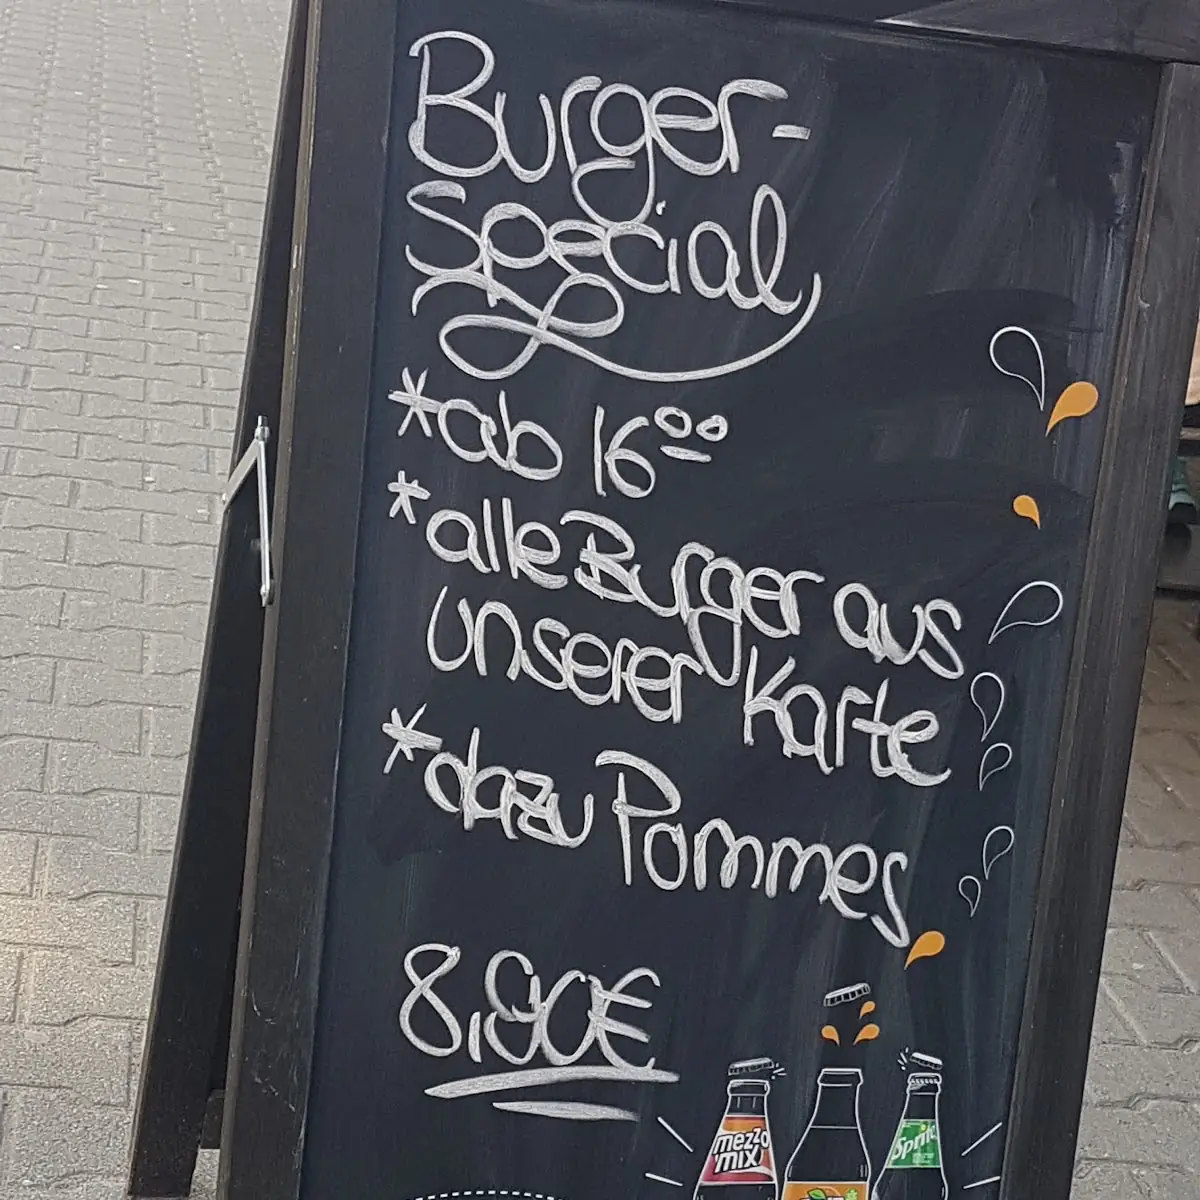 Burger-
Special
*ab 16⁰⁰
*alle Burger aus
unserer Karte
*dazu Pommes
8,90€
mezzo
mix
Sprite